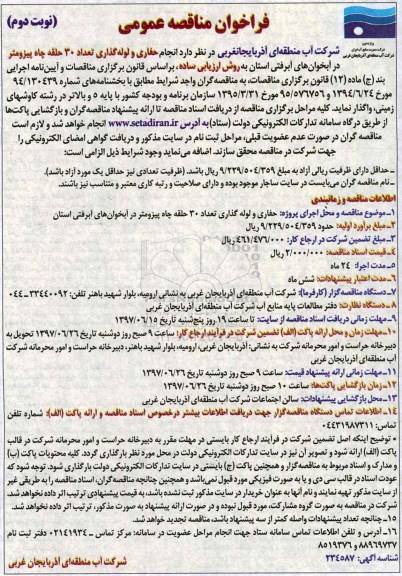 فراخوان مناقصه عمومی
(نوبت دوم)
شرکت آب منطقه‌ای آذربایجانغربی در نظر دارد انجام حفاری و لوله‌گذاری تعداد ۳۰ حلقه چاه پیزومتر
در آبخوان‌های آبرفتی استان به روش ارزیابی ساده، براساس قانون برگزاری مناقصات و آیین‌نامه اجرایی
بند (ج) ماده (۱۲) قانون برگزاری مناقصات، به مناقصه‌گران واجد شرایط مطابق با بخشنامه‌های شماره ۹۴/۱۳۰۴۳۹
مورخ ۱۳۹۴/۶/۲۴ و ۹۵/۵۷۶۷۵۶ مورخ ۱۳۹۵/۳/۳۱ سازمان برنامه و بودجه کشور با پایه ۵ و بالاتر در رشته کاوشهای
زمینی، واگذار نماید. کلیه مراحل برگزاری مناقصه از دریافت اسناد مناقصه تا ارائه پیشنهاد مناقصه‌گران و بازگشایی پاکت‌ها
از طریق درگاه سامانه تدارکات الکترونیکی دولت (ستاد) به آدرس www.setadiran.ir انجام خواهد شد و لازم است
مناقصه گران در صورت عدم عضویت قبلی، مراحل ثبت نام در سایت مذکور و دریافت گواهی امضای الکترونیکی را
جهت شرکت در مناقصه محقق سازند. اضافه می‌نماید وجود شرایط ذیل الزامی است:
ـ حداقل دارای ظرفیت ریالی آزاد به مبلغ ۹/۲۲۹/۵۰۴/۳۵۹ ریال باشد. (ظرفیت تعدادی نیز حداقل یک مورد آزاد باشد).
ـ نام مناقصه گران می‌بایست در سایت ساجار موجود بوده و دارای صلاحیت و رتبه کاری معتبر و متناسب نیز باشند.
اطلاعات مناقصه و زمانبندی
۱ـ موضوع مناقصه و محل اجرای پروژه: حفاری و لوله گذاری تعداد ۳۰ حلقه چاه پیزومتر در آبخوان‌های آبرفتی استان
۲ـ مبلغ برآورد اولیه: حدود ۹/۲۲۹/۵۰۴/۳۵۹ ریال
۳ـ مبلغ تضمین شرکت در ارجاع کار: ۴۶۱/۴۷۶/۰۰۰ ریال
۴ـ قیمت اسناد مناقصه: ۲/۰۰۰/۰۰۰ ریال
۵ـ مدت اجرا: ۲۴ ماه
۶ـ مدت اعتبار پیشنهادات: شش ماه
۷ـ دستگاه مناقصه‌گزار (کارفرما): شرکت آب منطقه‌ای آذربایجان غربی به نشانی ارومیه، بلوار شهید باهنر تلفن: ۳۳۴۴۰۰۹۲ـ۰۴۴
۸ـ دستگاه نظارت: دفتر مطالعات پایه منابع آب شرکت آب منطقه‌ای آذربایجان غربی
۹ـ مهلت زمانی دریافت اسناد مناقصه از سایت: تا ساعت ۱۹ روز پنج‌شنبه تاریخ ۱۳۹۷/۰۶/۱۵
۱۰ـ مهلت زمان و محل ارائه پاکت (الف) تضمین شرکت در فرآیند ارجاع کار: ساعت ۹ صبح روز دوشنبه تاریخ ۱۳۹۷/۰۶/۲۶ تحویل به
دبیرخانه حراست و امور محرمانه شرکت به نشانی: آذربایجان غربی، ارومیه، بلوار شهید باهنر، دبیرخانه حراست و امور محرمانه شرکت
آب منطقه‌ای آذربایجان غربی
۱۱ـ مهلت زمانی ارائه پیشنهاد قیمت: ساعت ۹ صبح روز دوشنبه تاریخ ۱۳۹۷/۰۶/۲۶
۱۲ـ زمان بازگشایی پاکت‌ها: ساعت ۱۰ صبح روز دوشنبه تاریخ ۱۳۹۷/۰۶/۲۶
۱۳ـ محل بازگشایی پیشنهادات: سالن اجتماعات شرکت آب منطقه‌ای آذربایجان غربی
۱۴ـ اطلاعات تماس دستگاه مناقصه‌گزار جهت دریافت اطلاعات بیشتر درخصوص اسناد مناقصه و ارائه پاکت (الف): شماره تلفن
تماس: ۰۴۴۳۱۹۸۷۳۱۱
• توضیح اینکه اصل تضمین شرکت در فرآیند ارجاع کار بایستی در مهلت مقرر به دبیرخانه حراست و امور محرمانه شرکت در قالب
پاکت (الف) ارائه شود و تصویر آن نیز در سایت تدارکات الکترونیکی دولت در محل مورد نظر بارگذاری گردد. کلیه محتویات پاکت (ب)
و مدارک و اسناد مربوط به مناقصه‌گزار و همچنین پاکت (ج) بایستی در سایت تدارکات الکترونیکی دولت بارگذاری شود. توجه شود که
عودت اسناد در قالب سی دی و یا به صورت فیزیکی مورد قبول نمی‌باشد و همچنین چنانچه مناقصه‌گران، اسناد مناقصه را به طریقی غیر
از سایت مذکور تهیه نمایند و نام آنها به عنوان خریدار در سایت مذکور ثبت نشده باشد، به قیمت پیشنهادی ترتیب اثر داده نخواهد شد.
شرکت در مناقصه به صورت گروه مشارکت، مورد قبول نبوده و در صورت ارائه پیشنهاد به صورت مذکور، ترتیب اثر داده نخواهد شد.
۱۵ـ چنانچه تعداد پیشنهادات واصله کمتر از سه پیشنهاد باشد، مناقصه تجدید خواهد شد.
۱۶ـ آدرس و تلفن اطلاعات تماس سامانه ستاد جهت انجام مراحل عضویت در سامانه: مرکز تماس ـ ۰۲۱۴۱۹۳۴ دفتر ثبت نام
۸۸۹۶۹۷۳۷ و ۸۵۱۹۳۷۶
شناسه آگهی: ۲۳۴۵۸۷
شرکت آب منطقه‌ای آذربایجان غربی